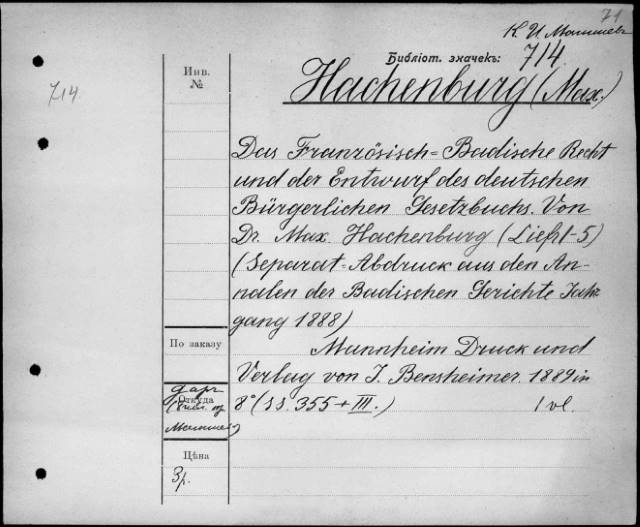 71
К. И. Малышевъ
Библіот. значекъ:
714
714.
Инв.
№
Hachenburg (Max.)
Das Französisch=Badische Recht
und der Entwurf des deutschen
Bürgerlichen Gesetzbuchs. Von
Dr. Max. Hachenburg (Lief 1-5)
(Separat=Abdruck aus den An-
nalen der Badischen Gerichte Jahr
gang 1888)
По заказу
Mannheim Druck und
Verlag von J. Bensheimer. 1889 in
8° (SS. 355 + III.)
1 vl.
даръ
Откуда
Цѣна
3р.